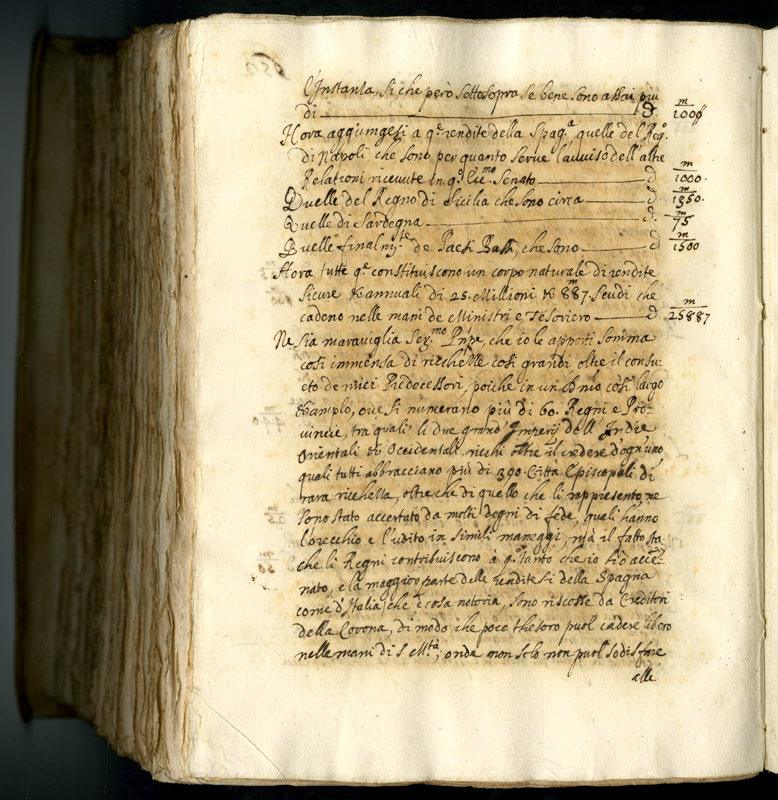 l'Instanza, si che però sottosopra se bene sono assai più
di ——— d 100 m
Hora aggiungesi a q.e rendite della Spag.a quelle del Reg.o
di Napoli che sono per quanto serue l'auuiso dell'altre
Relationi riceuute in q.o Ecc.mo Senato ——— d 1000. m
Quelle del Regno di Sicilia che sono circa ——— d 1350. m
Quelle di Sardegna ——— d. 75 m
Quelle finalm.te de Paesi Bassi, che sono ——— d 1500 m
Hora tutte q.e constituiscono un corpo naturale di rendite
sicure & annuali di 25. Millioni & 887.m Scudi che
cadeno nelle mani de Ministri e Tesoriero ——— d 25887 m
Ne sia marauiglia Ser.mo Pñpe, che io le apporti somma
cosi immensa di ricchezze cosi grandi oltre il consu-
eto de miei Predecessori, poiche in un Dñio così largo
& amplo, oue si numerano più di 60. Regni e Pro-
uincie, tra quali li due grand' Imperij dell'Indie
Orientali & Occidentali ricchi oltre il credere d'ogn'uno
quali tutti abbracciano più di 390. Città Episcopali di
rara ricchezza, oltre che di quello che li rappresento, ne
sono stato accertato da molti degni di fede, quali hanno
l'orecchio e l'udito in simili maneggi, mà il fatto sta
che li Regni contribuiscono à q.o tanto che io hò accen-
nato, e la maggior parte delle rendite si della Spagna
come d'Italia, che è cosa notoria, sono riscosse da Creditori
della Corona, di modo che poco thesoro puol cadere libero
nelle mani di S. M.tà, onde non solo non puol sodisfare
alle